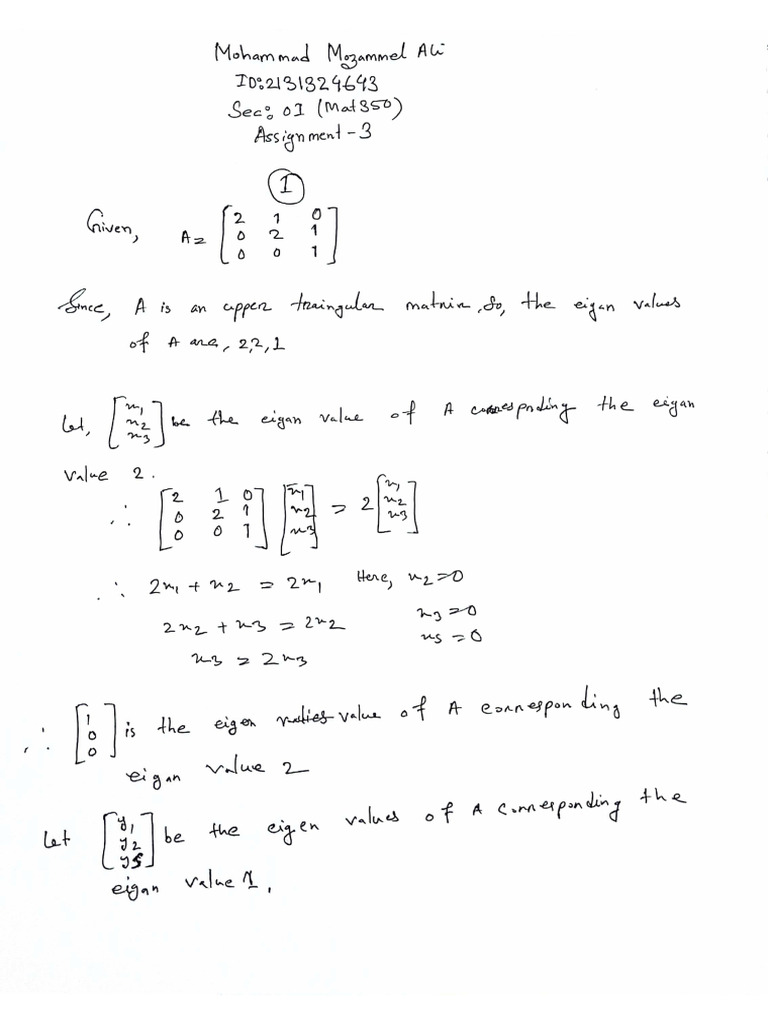 Mohammad Mozammel Ali
ID:2131324643
Sec: 01 (Mat350)
Assignment-3
1
Given, A = [2 1 0; 0 2 1; 0 0 1]
Since, A is an upper traingular matrix, So, the eigan values
of A are, 2,2,1
Let, [x1; x2; x3] be the eigan value of A corresponding the eigan
value 2.
∴ [2 1 0; 0 2 1; 0 0 1] [x1; x2; x3] = 2 [x1; x2; x3]
∴ 2x1 + x2 = 2x1 Here, x2=0
2x2 + x3 = 2x2 x3=0
x3 = 2x3 x3=0
∴ [1; 0; 0] is the eigen value of A corresponding the
eigan value 2
Let [y1; y2; y3] be the eigen values of A corresponding the
eigan value 1.